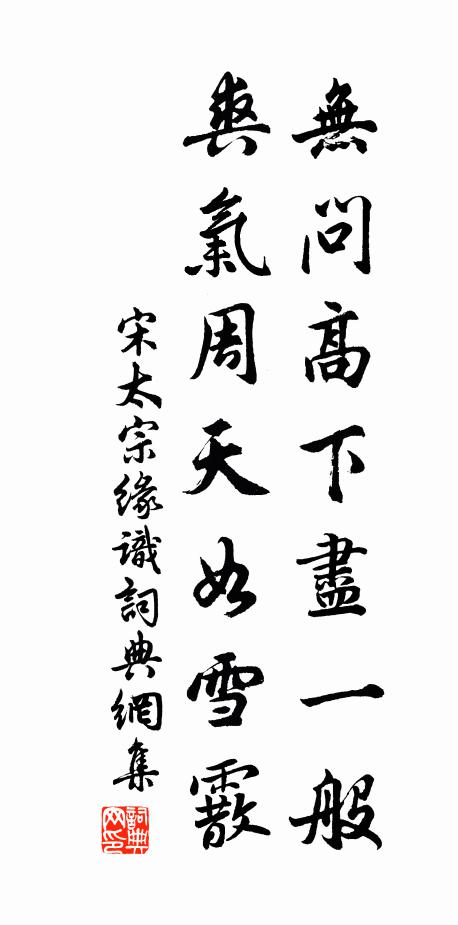 無問高下盡一般
爽氣周天如雪霰
宋太宗緣識詞典網集
詞典網印